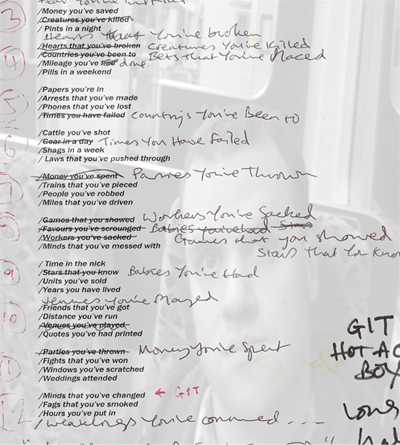 /Money you've saved
/Creatures you've killed
/ Pints in a night
Hearts that You've broken
/Hearts that you've broken Creatures You've Killed
/Countries you've been to Bets that You've Placed
/Mileage you've done
/Pills in a weekend
/Papers you're in
/Arrests that you've made
/Phones that you've lost
/Times you have failed Countrys You've Been to
/Cattle you've shot
/Gear in a day Times You Have Failed
/Shags in a week
/ Laws that you've pushed through
/Money you've spent Parties You've Thrown
/Trains that you've pieced
/People you've robbed
/Miles that you've driven
/Games that you showed Workers You've Sacked
/Favours you've scrounged Babies you've had Stars
/Workers you've sacked Games that you showed
/Minds that you've messed with Stars that You Know
/ Time in the nick
/Stars that you know Babies You've Had
/Units you've sold
/Years you have lived
Venues You've Played
/Friends that you've got
/Distance you've run
/Venues you've played
/Quotes you've had printed
/Parties you've thrown Money You've Spent
/Fights that you've won
/Windows you've scratched
/Weddings attended
/Minds that you've changed ← GIT
/Fags that you've smoked
/Hours you've put in
/weaklings You've conned...
GIT
HOT A
BOY